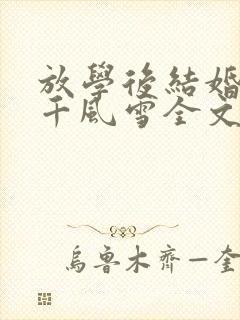 放學後結婚
千風雪全文
烏魯木齊—奎